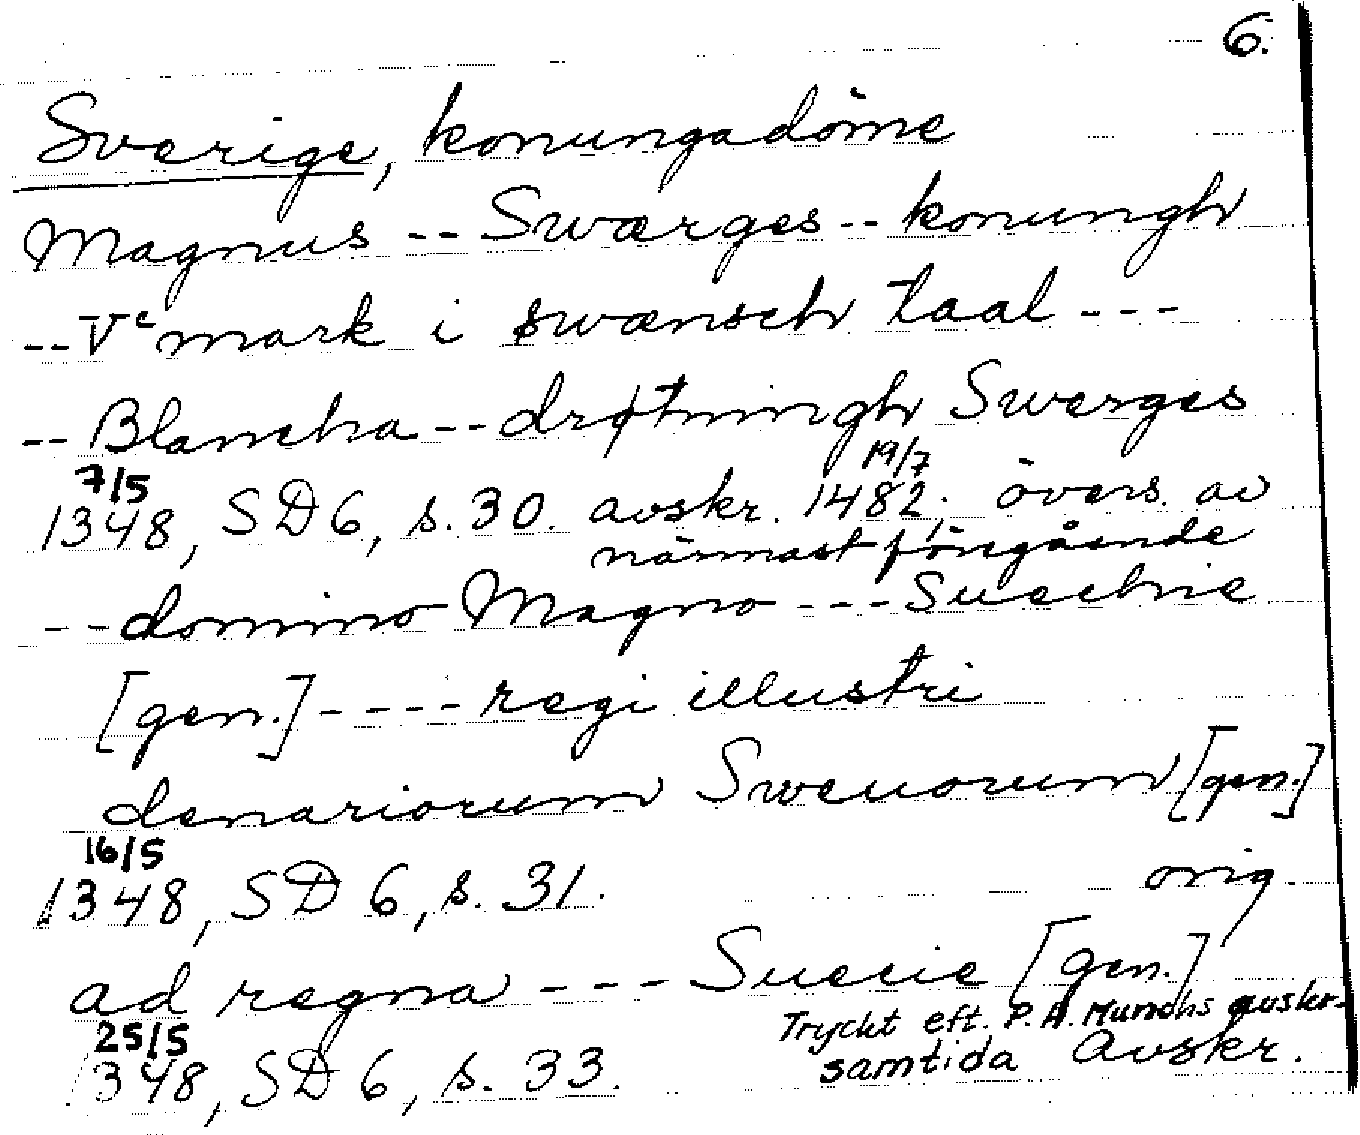 6.
Sverige, konungadöme
Magnus -- Swærges -- konungh
-- Vc mark i swænsch taal ---
-- Blancha -- drøtningh Swerges
7/5 19/7
1348, SD 6, s. 30. avskr. 1482, övers. av
närmast föregående
-- domino Magno --- Suechie
[gen.] ---- regi illustri
denariorum Sweuorum [gen.]
16/5
1348, SD 6, s. 31. orig.
ad regna --- Suecie [gen.]
25/5 Tryckt eft. P.A. Munchs avskr.
1348, SD 6, s. 33. samtida avskr.